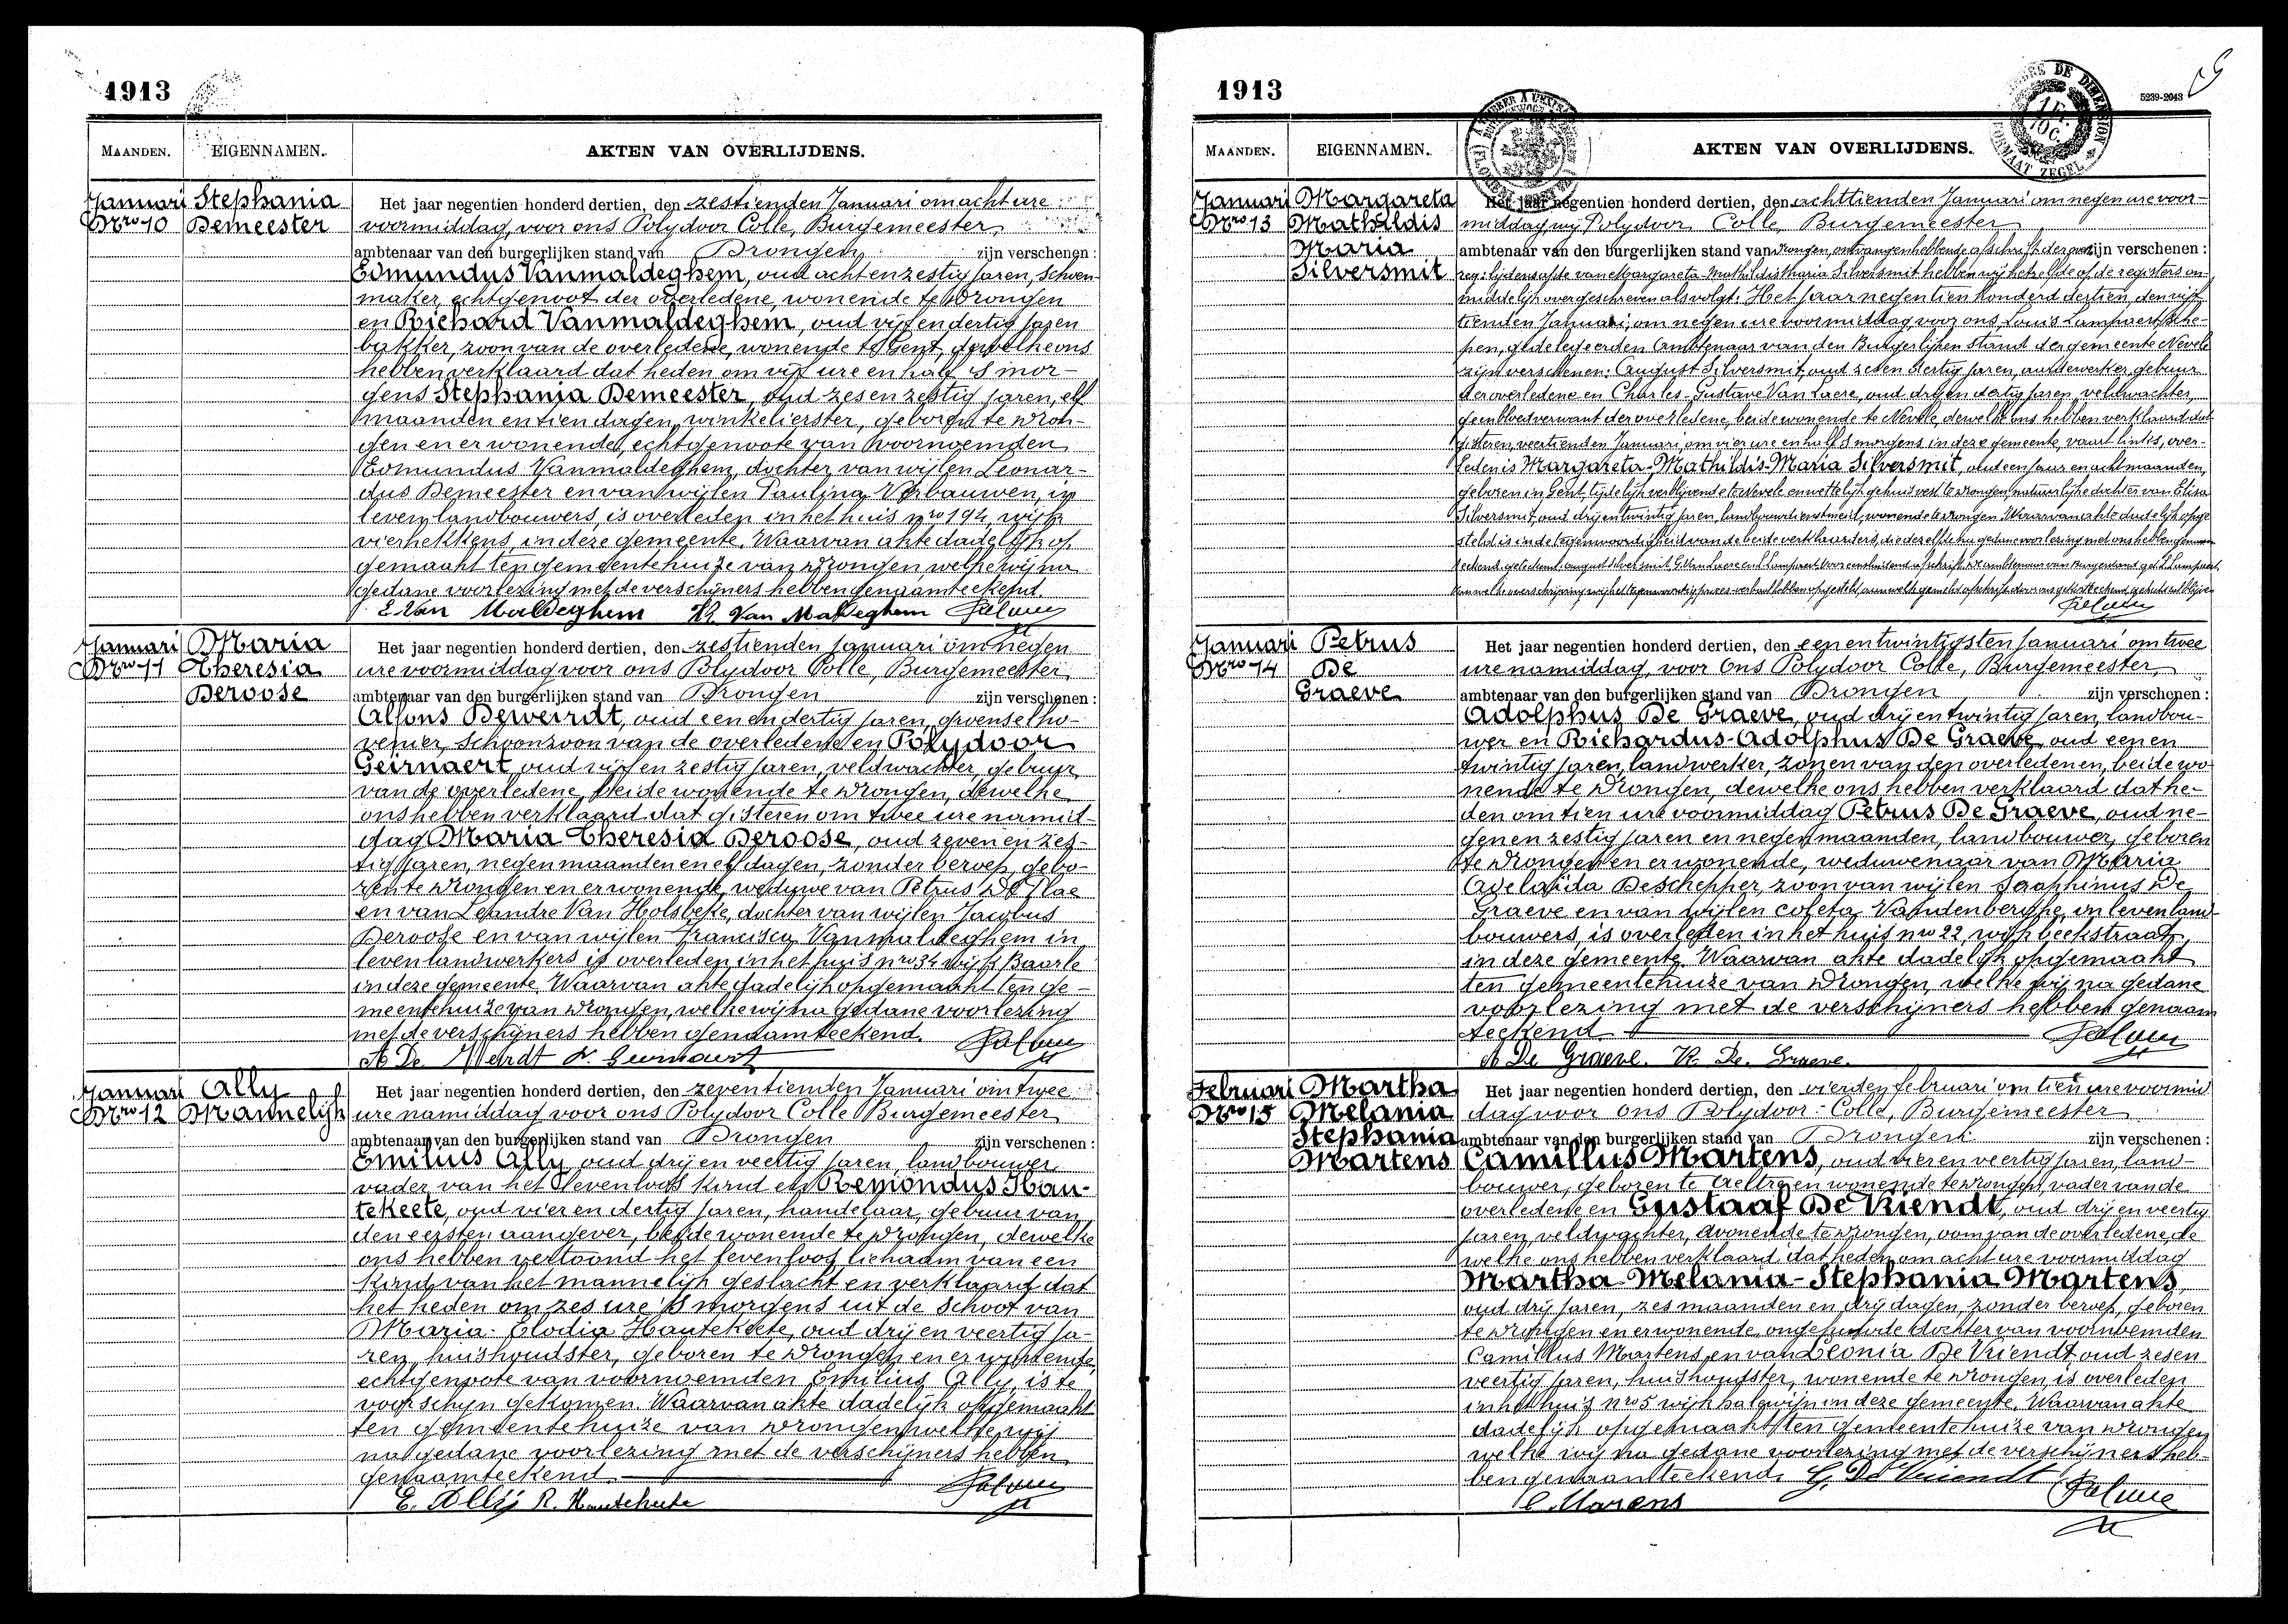 1913
MAANDEN.
EIGENNAMEN.
AKTEN VAN OVERLIJDENS.
Januari
Nro 10
Stephania
Demeester
Het jaar negentien honderd dertien, den zestienden Januari om acht ure
voormiddag, voor ons Polydoor Colle, Burgemeester
ambtenaar van den burgerlijken stand van Drongen zijn verschenen :
Edmundus Vanmaldeghem, oud acht en zestig jaren, schoen-
maker, echtgenoot der overledene, wonende te Drongen
en Richard Vanmaldeghem, oud vijf en dertig jaren
bakker, zoon van de overledene, wonende te Gent, dewelke ons
hebben verklaard dat heden om vijf ure en half 's mor-
gens Stephania Demeester, oud zes en zestig jaren, elf
maanden en tien dagen, winkelierster, geboren te Dron-
gen en er wonende, echtgenoote van voornoemden
Edmundus Vanmaldeghem, dochter van wijlen Leonar-
dus Demeester en van wijlen Paulina Verbauwen, in
leven landbouwers, is overleden in het huis nro 194, wijk
vierhekkens, in deze gemeente. Waarvan akte dadelijk op
gemaakt ten gemeentehuize van Drongen, welke wij na
gedane voorlezing met de verschijners hebben genaamteekend.
E Van Maldeghem R. Van Maldeghem
Januari
Nro 11
Maria
Theresia
Deroose
Het jaar negentien honderd dertien, den zestienden Januari om negen
ure voormiddag voor ons Polydoor Colle, Burgemeester
ambtenaar van den burgerlijken stand van Drongen zijn verschenen :
Alfons Deweirdt, oud een en dertig jaren, groenselho-
venier, schoonzoon van de overledene en Polydoor
Geirnaert, oud vijf en zestig jaren, veldwachter, gebuur
van de overledene, beide wonende te Drongen, dewelke
ons hebben verklaard dat gisteren om twee ure namid-
dag Maria Theresia Deroose, oud zeven en zes-
tig jaren, negen maanden en elf dagen, zonder beroep, gebo-
ren te Drongen en er wonende, weduwe van Petrus De Vlae
en van Leandre Van Holsbeke, dochter van wijlen Jacobus
Deroose en van wijlen Francisca Vanmaldeghem in
leven landwerkers is overleden in het huis nro 34 wijk Baarle
in deze gemeente. Waarvan akte dadelijk opgemaakt ten ge-
meentehuize van Drongen, welke wij na gedane voorlezing
met de verschijners hebben genaamteekend.
A De Weirdt P. Geirnaert
Januari
Nro 12
Ally
Mannelijk
Het jaar negentien honderd dertien, den zeventienden Januari om twee
ure namiddag voor ons Polydoor Colle Burgemeester
ambtenaar van den burgerlijken stand van Drongen zijn verschenen :
Emilius Ally, oud drij en veertig jaren, landbouwer
vader van het levenloos kind en Remondus Hau-
tekeete, oud vier en dertig jaren, handelaar, gebuur van
den eersten aangever, beide wonende te Drongen, dewelke
ons hebben vertoond het levenloos lichaam van een
kind van het mannelijk geslacht en verklaard dat
het heden om zes ure 's morgens uit de schoot van
Maria-Elodia Hautekeete, oud drij en veertig ja-
ren, huishoudster, geboren te Drongen en er wonende,
echtgenoote van voornoemden Emilius Ally, is te
voorschijn gekomen. Waarvan akte dadelijk opgemaakt
ten gemeentehuize van Drongen welke wij
na gedane voorlezing met de verschijners hebben
genaamteekend
E. Ally R. Hautekeete
1913
5239-2043
MAANDEN.
EIGENNAMEN.
AKTEN VAN OVERLIJDENS.
Januari
Nro 13
Margareta
Mathildis
Maria
Silversmit
Het jaar negentien honderd dertien, den achttienden Januari om negen ure voor-
middag, wij Polydoor Colle, Burgemeester
ambtenaar van den burgerlijken stand van Drongen, ontvangen hebbende afschrift der over zijn verschenen :
lijdensakte van Margareta Mathildis Maria Silversmit hebben wij hetzelfde op de registers on-
middelijk overgeschreven als volgt: Het jaar negentien honderd dertien, den vijf-
tienden Januari, om negen ure voormiddag voor ons Louis Lampaert, Sche-
pen, gedelegeerden ambtenaar van den Burgerlijken stand der gemeente Nevele
zijn verschenen: August Silversmit, oud zeven dertig jaren, aardewerker, gebuur
der overledene en Charles-Gustave Van Laere, oud drij en dertig jaren, veldwachter,
geen bloedverwant der overledene, beide wonende te Nevele, dewelke ons hebben verklaard dat
gisteren, veertienden Januari, om vier ure en half 's morgens in deze gemeente, vaart links, over-
leden is Margareta-Mathildis-Maria Silversmit, oud een jaar en acht maanden,
geboren in Gent, tijdelijk verblijvende te Nevele en wettelijk gehuisvest te Drongen, natuurlijke dochter van Elisa
Silversmit, oud drij en twintig jaren, landbouwdienstmeid, wonende te Drongen. Waarvan akte dadelijk opge
steld is in de tegenwoordigheid van de beide verklaarders, die dezelfde na gedane voorlezing met ons hebben
Januari
Nro 14
Petrus
De
Graeve
Het jaar negentien honderd dertien, den een en twintigsten Januari om twee
ure namiddag, voor ons Polydoor Colle, Burgemeester
ambtenaar van den burgerlijken stand van Drongen zijn verschenen :
Adolphus De Graeve, oud drij en twintig jaren, landbou-
wer en Richardus-Adolphus De Graeve, oud een en
twintig jaren, landwerker, zonen van den overledenen, beide wo-
nende te Drongen, dewelke ons hebben verklaard dat he-
den om tien ure voormiddag Petrus De Graeve, oud ne-
gen en zestig jaren en negen maanden, landbouwer, geboren
te Drongen en er wonende, weduwenaar van Maria
Adelaïda Deschepper, zoon van wijlen Seraphinus De
Graeve en van wijlen Coleta Vandenberghe, in leven land-
bouwers, is overleden in het huis nro 22, wijk beekstraat,
in deze gemeente. Waarvan akte dadelijk opgemaakt
ten gemeentehuize van Drongen, welke wij na gedane
voorlezing met de verschijners hebben genaam
teekend
A De Graeve. R. De. Graeve.
Februari
Nro 15
Martha
Melania
Stephania
Martens
Het jaar negentien honderd dertien, den vierden februari om tien ure voormid
dag voor ons Polydoor Colle, Burgemeester
ambtenaar van den burgerlijken stand van Drongen zijn verschenen :
Camillus Martens, oud vier en veertig jaren, land-
bouwer, geboren te Aeltre en wonende te Drongen, vader van de
overledene en Gustaaf De Vriendt, oud drij en veertig
jaren, veldwachter, wonende te Drongen, oom van de overledene, de
welke ons hebben verklaard dat heden om acht ure voormiddag
Martha-Melania-Stephania Martens,
oud drij jaren, zes maanden en drij dagen, zonder beroep, geboren
te Drongen en er wonende, ongehuwde dochter van voornoemden
Camillus Martens en van Leonia De Vriendt, oud zes en
veertig jaren, huishoudster, wonende te Drongen, is overleden
in het huis nro 5 wijk halewijn in deze gemeente. Waarvan akte
dadelijk opgemaakt ten gemeentehuize van Drongen
welke wij na gedane voorlezing met de verschijners heb-
ben genaamteekend. G. De Vriendt
C. Martens